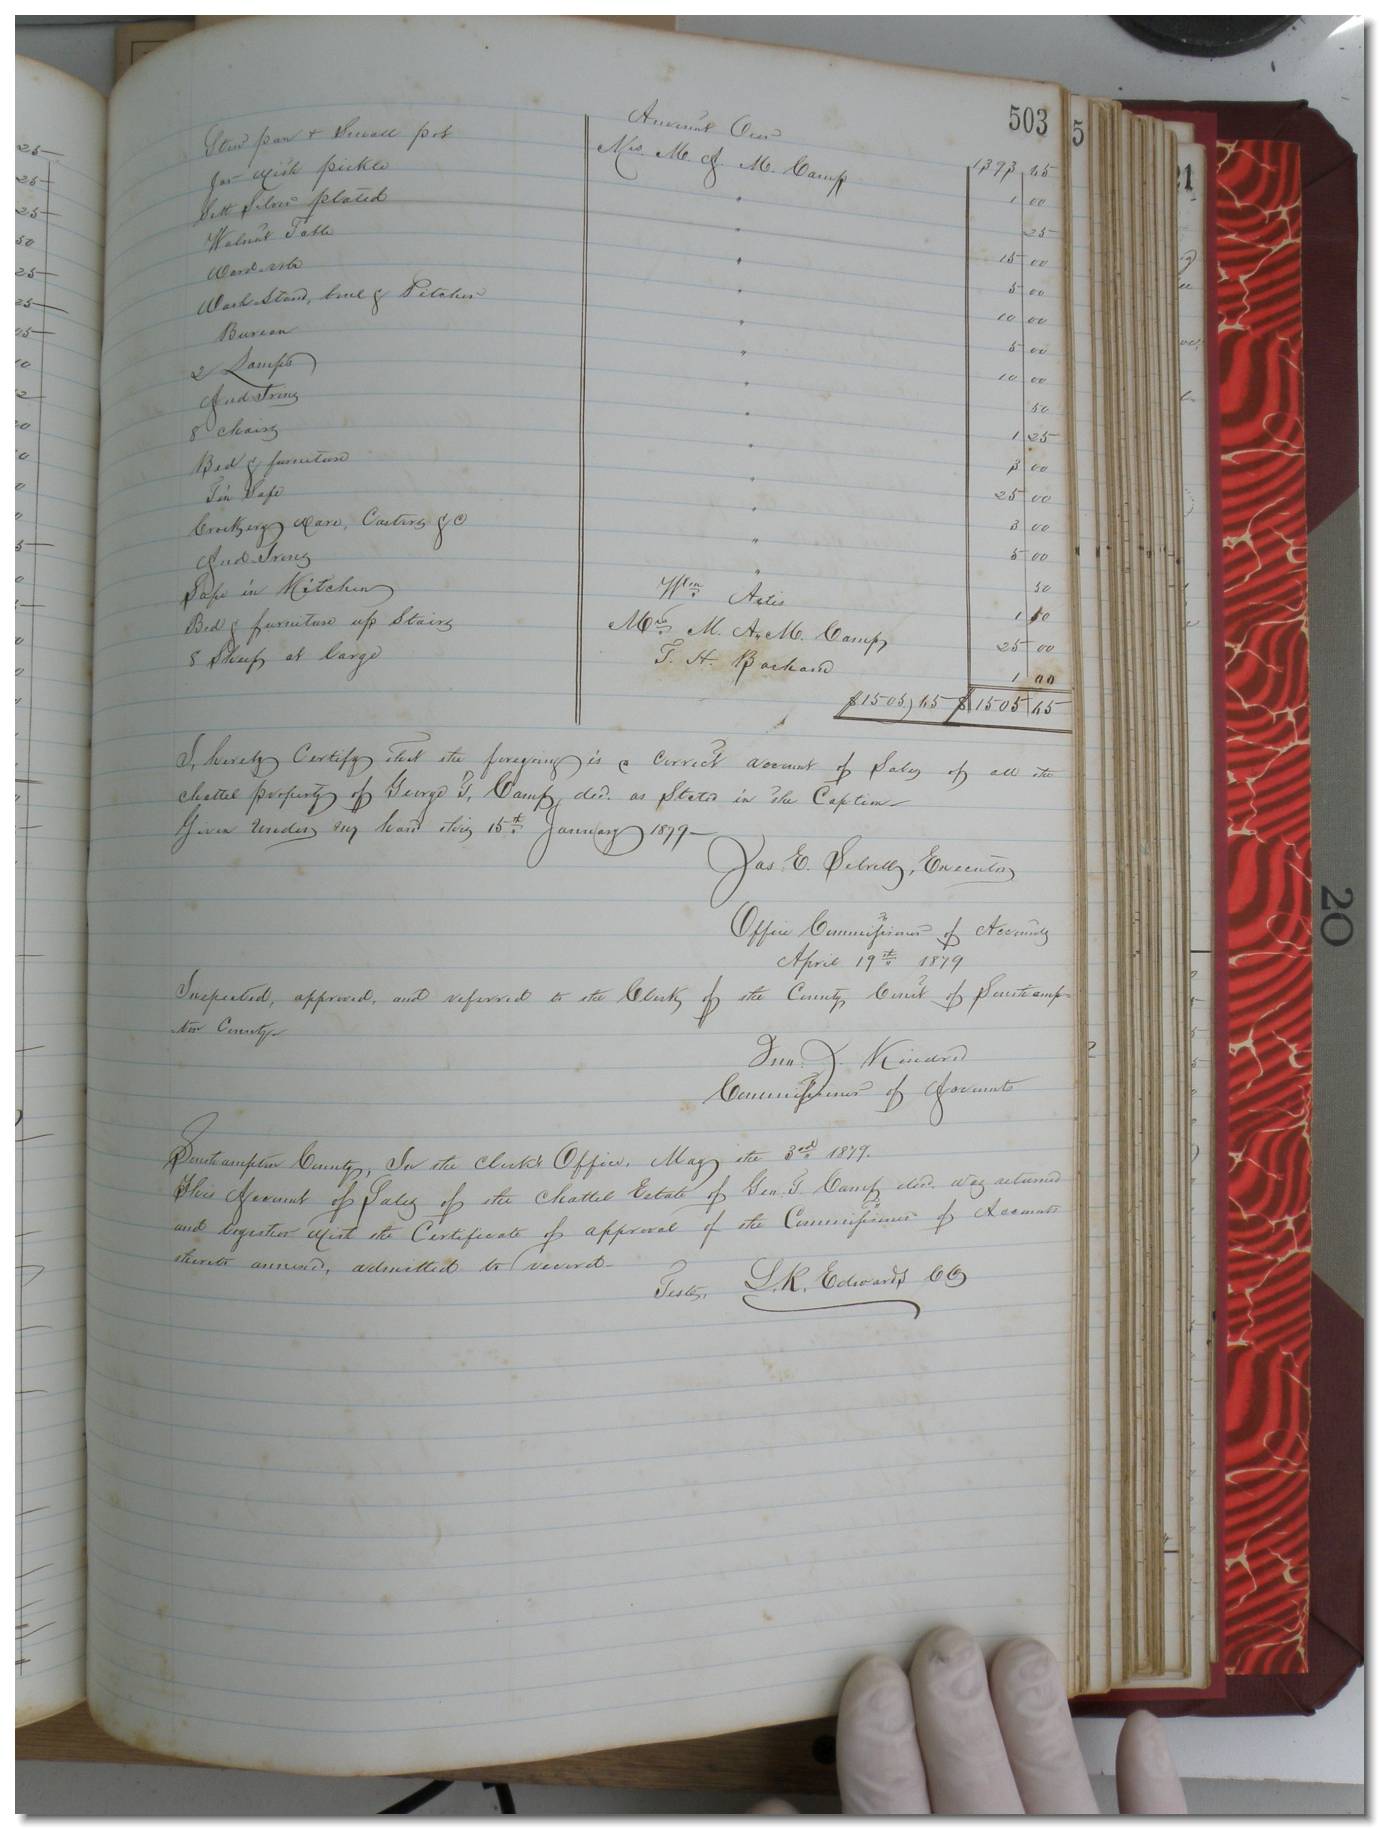 503
Amount Over 1393 45
Stew pan & Small pot Mrs. M. A. M. Camp 1 00
Jar with pickle " 25
Sett Silver plated " 15 00
Walnut Table " 5 00
Wardrobe " 10 00
Wash Stand, bowl & Pitcher " 5 00
Bureau " 10 00
2 Lamps " 50
And Irons " 1 25
8 chairs " 3 00
Bed & furniture " 25 00
Tin Safe " 3 00
Crockery ware, Castors &c " 5 00
And Irons " 50
Safe in Kitchen Wm Artis 1 00
Bed & furniture up Stairs Mrs M. A. M. Camp 25 00
8 Sheep at large T. H. Barham 1 00
$1505,45 $ 1505 45
I, hereby Certify that the foregoing is a correct account of Sales of all the
chattel property of George T, Camp, dec. as Stated in the Caption
Given under my hand this 15th January 1879—
Jas. E. Sebrell, Executor
Office Commissioner of Accounts
April 19th 1879
Inspected, approved, and referred to the Clerk of the County Court of Southamp-
ton County.
Jno. J. Kindred
Commissioner of Accounts
Southampton County, In the clerk's Office, May the 3rd 1879.
This Account of Sales of the chattel Estate of Geo. T. Camp dec. was returned
and together with the Certificate of approval of the Commissioner of Accounts
thereto annexed, admitted to record—
Teste, L. R. Edwards CC
5
21
20
25
25
25
50
25
25